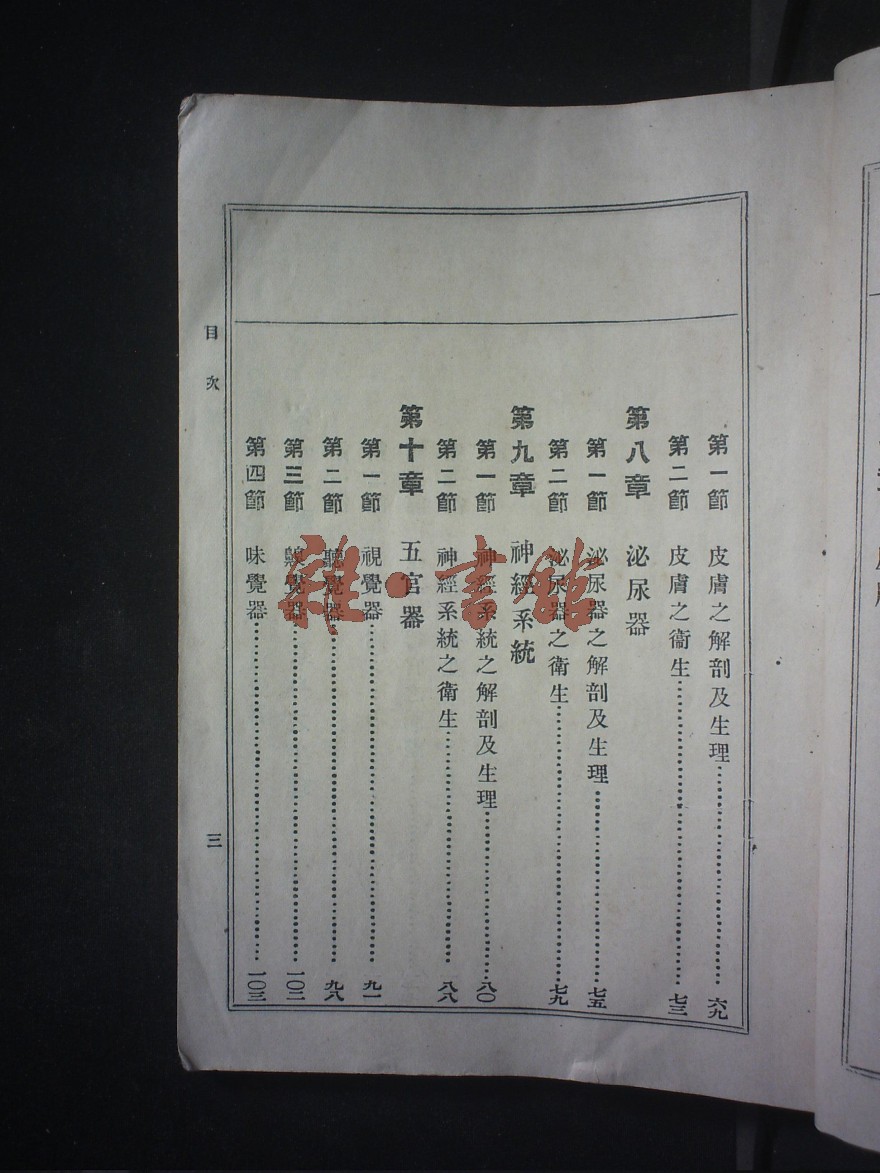 第一節 皮膚之解剖及生理 六九
第二節 皮膚之衞生 七三
第八章 泌尿器
第一節 泌尿器之解剖及生理 七五
第二節 泌尿器之衞生 七九
第九章 神經系統
第一節 神經系統之解剖及生理 八〇
第二節 神經系統之衞生 八八
第十章 五官器
第一節 視覺器 九一
第二節 聽覺器 九八
第三節 齅覺器 一〇二
第四節 味覺器 一〇三
目次 三
雜·書館